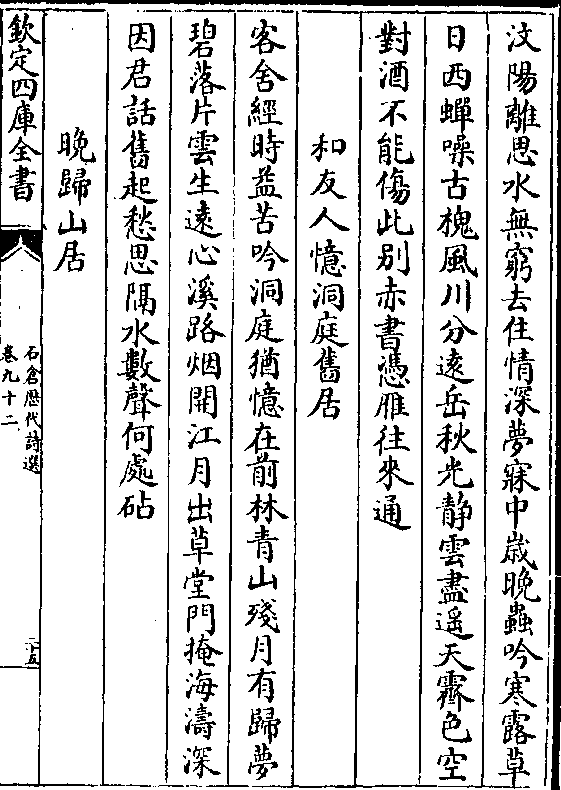 汶陽離思水無窮去住情深夢寐中歲晚蟲吟寒露草
日西蟬噪古槐風川分遠岳秋光静雲盡遥天霽色空
對酒不能傷此别赤書憑雁往來通
和友人憶洞庭舊居
客舍經時益苦吟洞庭猶憶在前林青山殘月有歸夢
碧落片雲生遠心溪路烟開江月出草堂門掩海濤深
因君話舊起愁思隔水數聲何處砧
晚歸山居
欽定四庫全書
石倉歷代詩選
卷九十二
二十五